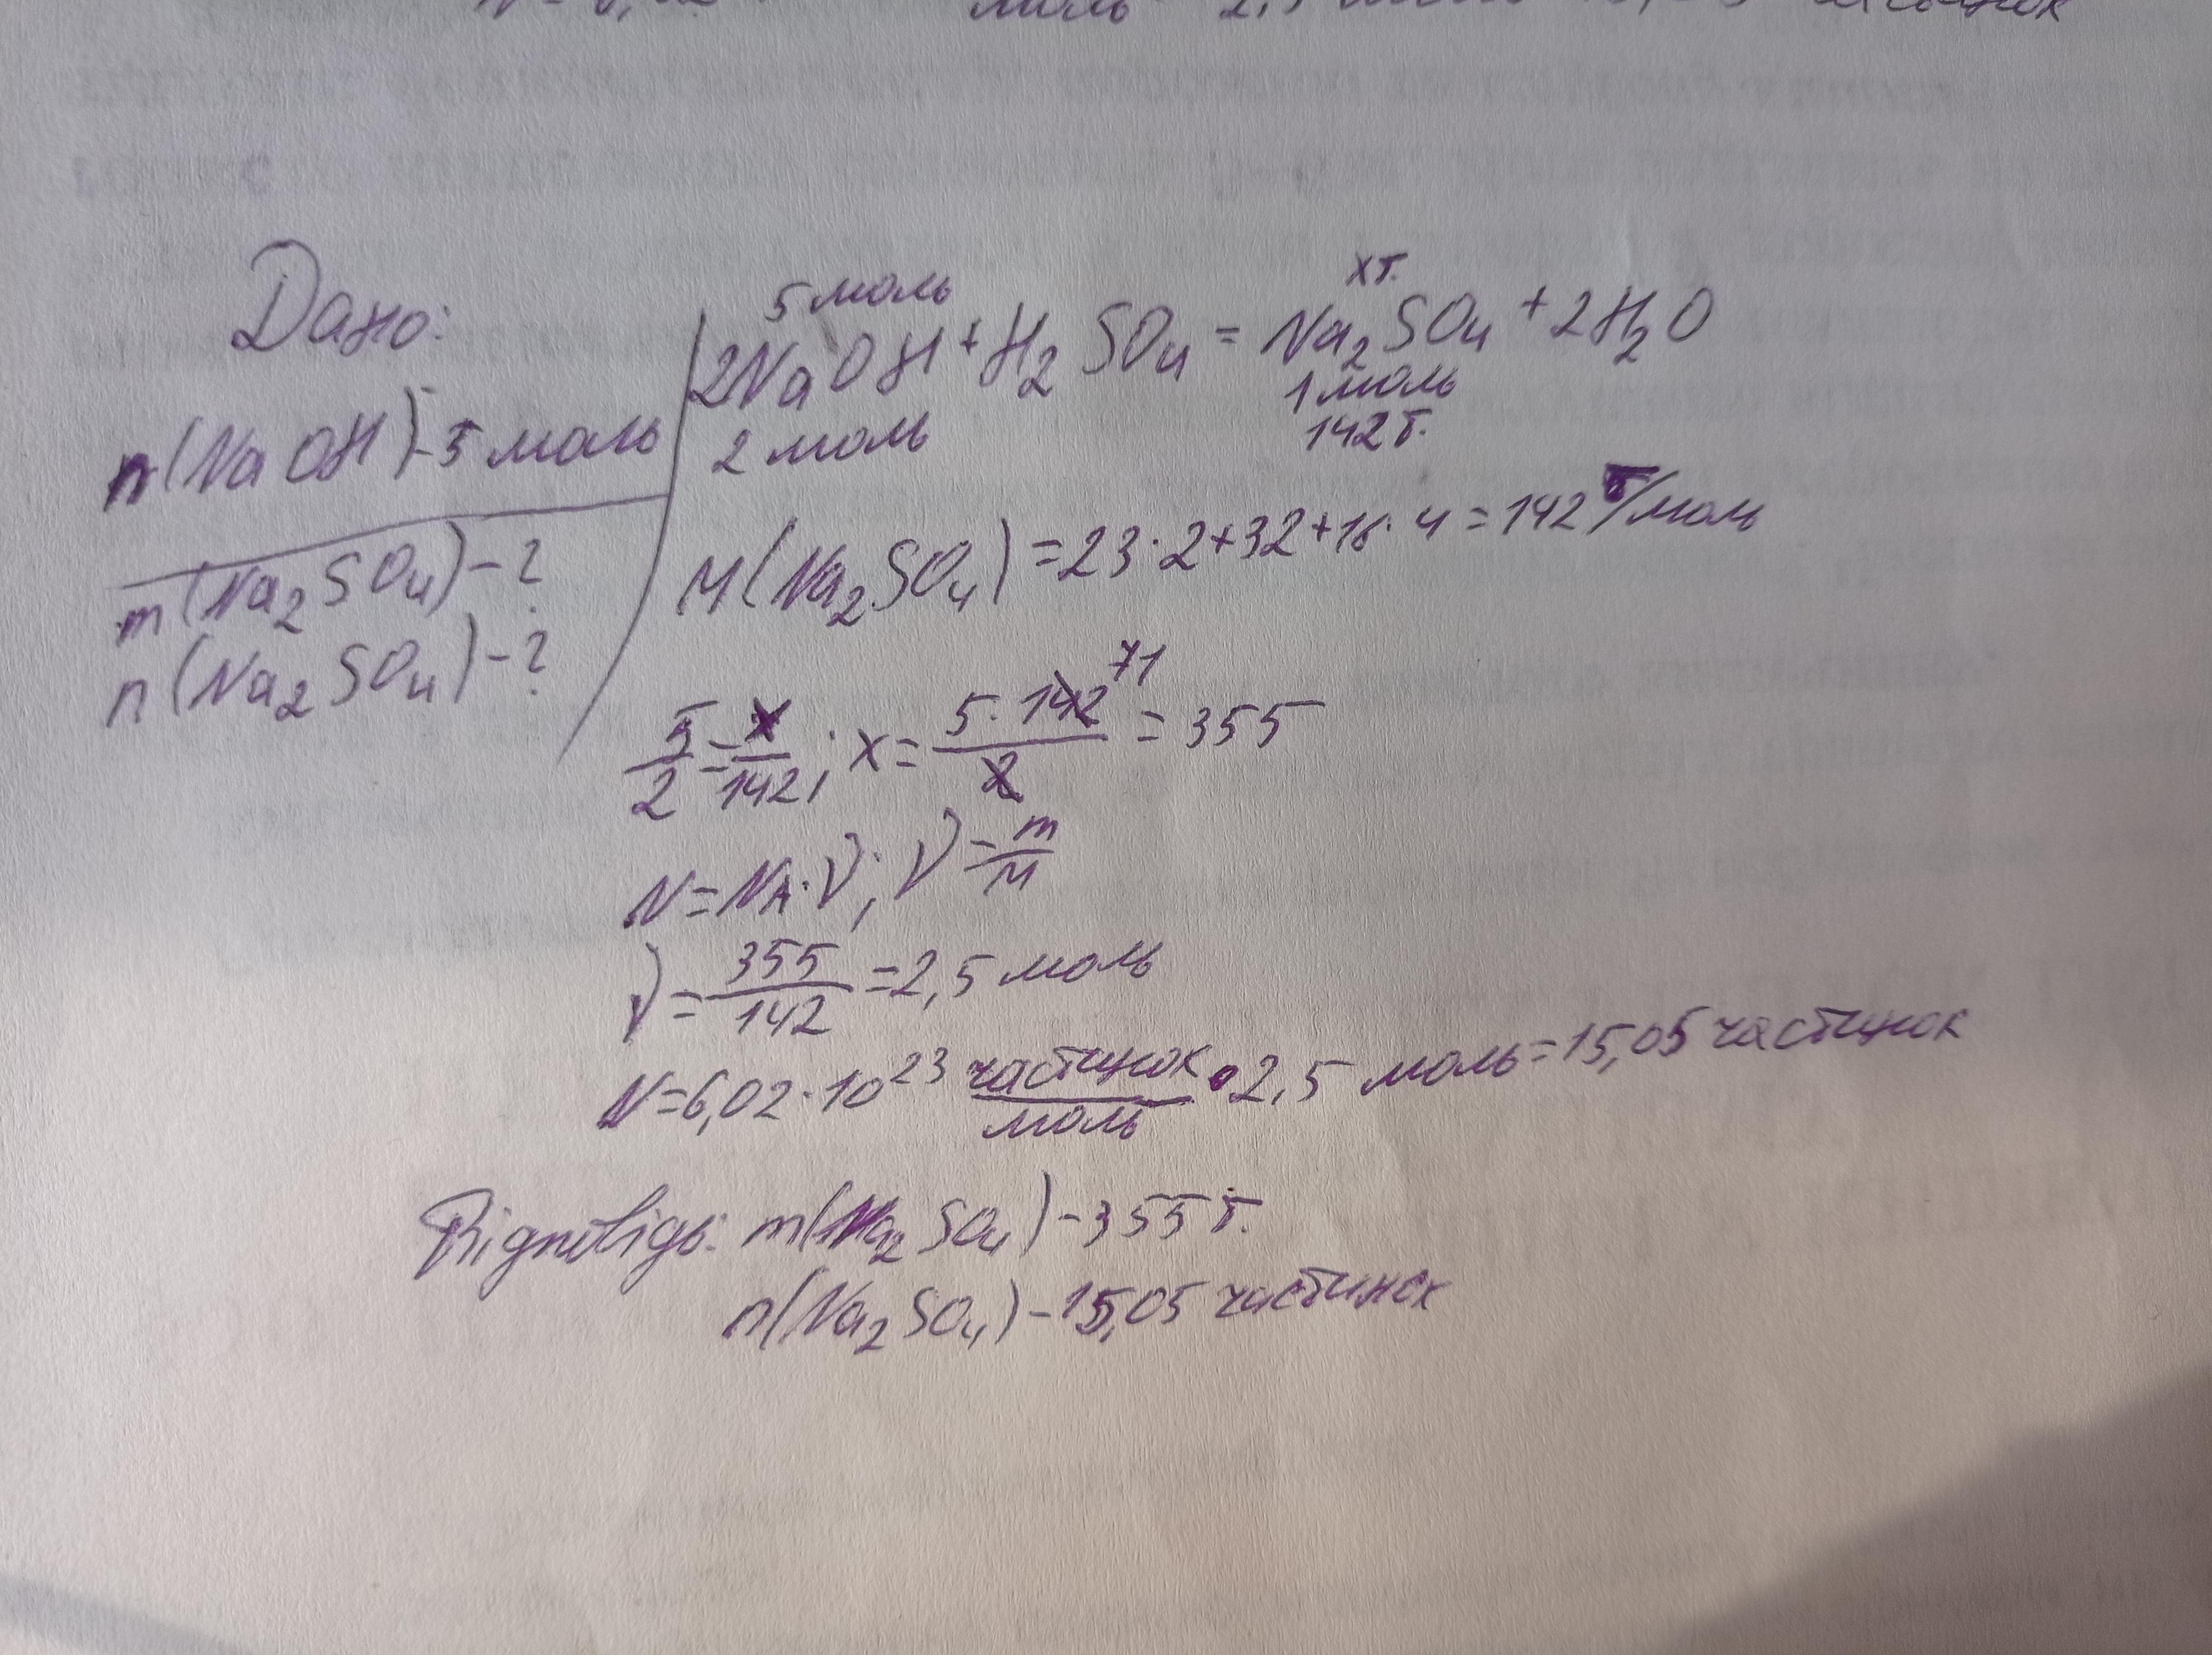 Дано:
n(NaOH)-5 моль
m(Na₂SO₄)-?
n(Na₂SO₄)-?
5 моль xг.
2NaOH+H₂SO₄=Na₂SO₄+2H₂O
2 моль 1 моль
142г.
M(Na₂SO₄)=23·2+32+16·4=142 г/моль
5/2=x/142; x=5·142/2=355
71
N=Nᴀ·ν; ν=m/M
ν=355/142=2,5 моль
N=6,02·10²³ частинок/моль·2,5 моль=15,05 частинок
Відповідь: m(Na₂SO₄)-355 г.
n(Na₂SO₄)-15,05 частинок